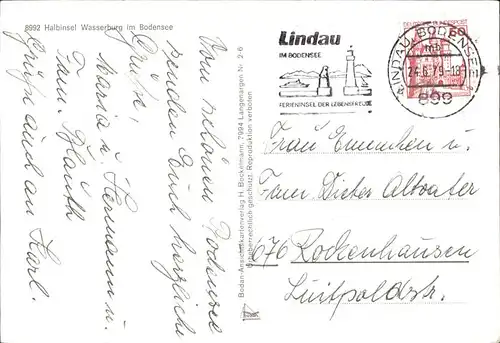 8992 Halbinsel Wasserburg im Bodensee
Vom schönen Bodensee
senden Euch herzliche
Grüße,
Maria u. Hermann u.
Fam.
Grüße auch an Karl.
Bodan-Ansichtskartenverlag H. Bockelmann, 7994 Langenargen Nr. 2-6
Urheberrechtlich geschützt. Reproduktion verboten
Lindau
IM BODENSEE
FERIENINSEL DER LEBENSFREUDE
LINDAU, BODENSEE
mb
24.6.79-18
899
60
Frau Emmchen u.
Fam. Dieter Altvater
676 Rockenhausen
Luitpoldstr.